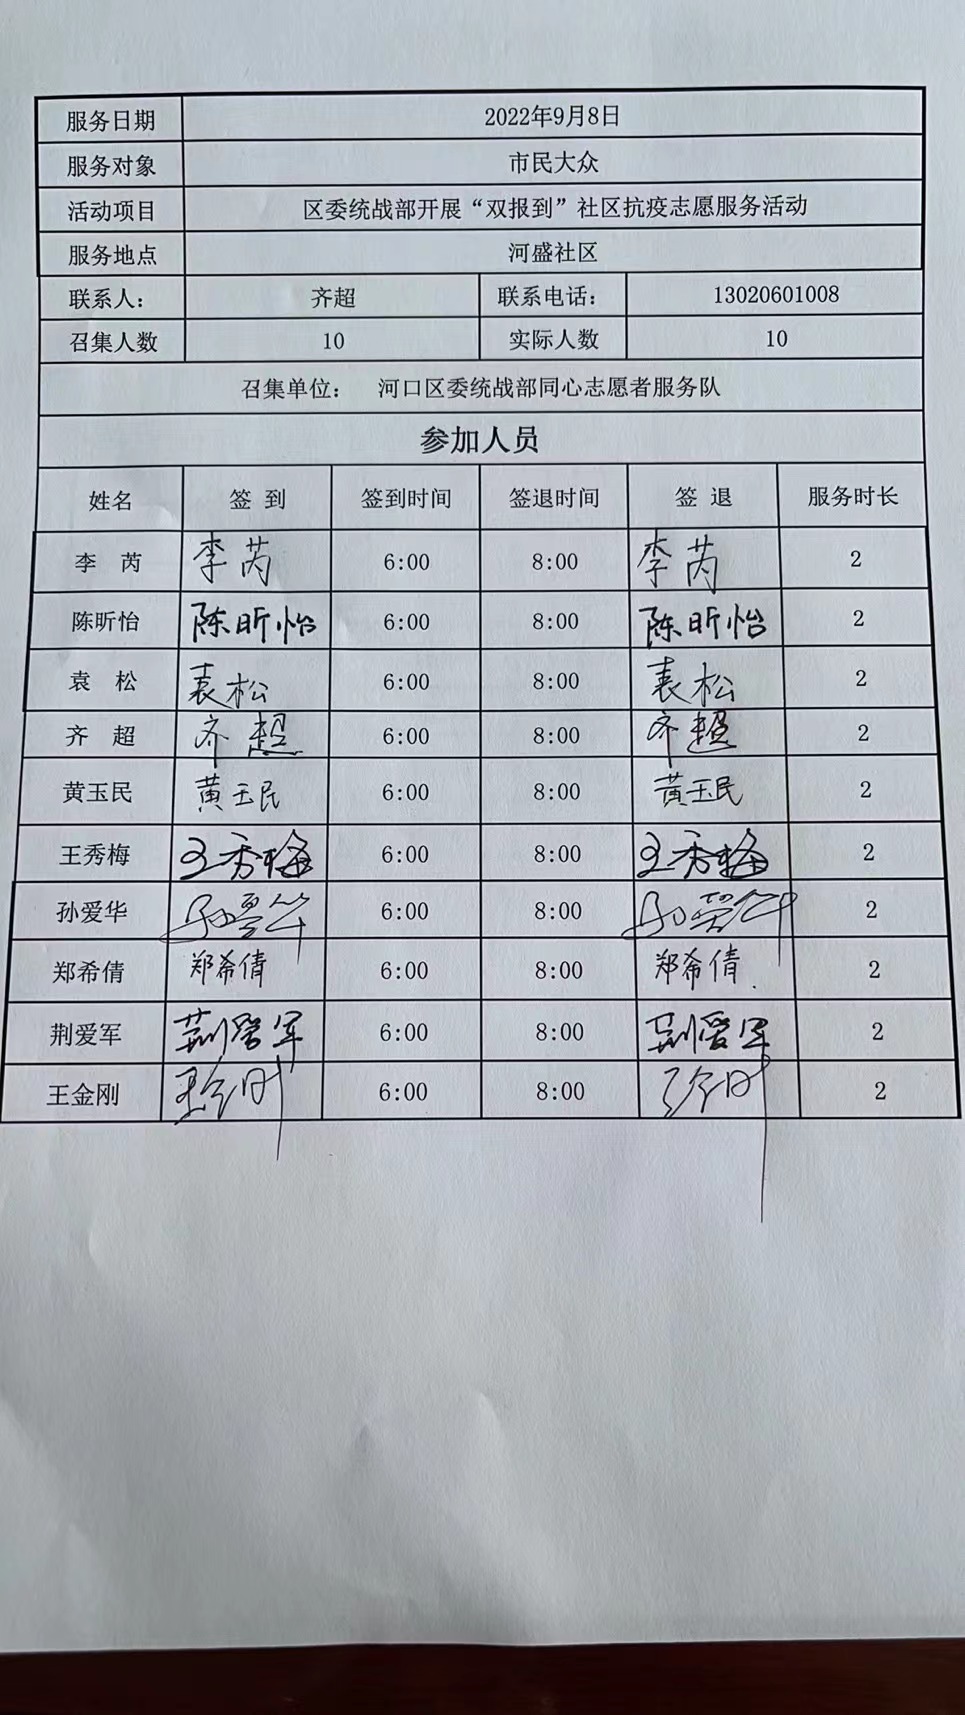 服务日期 2022年9月8日
服务对象 市民大众
活动项目 区委统战部开展“双报到”社区抗疫志愿服务活动
服务地点 河盛社区
联系人： 齐超 联系电话： 13020601008
召集人数 10 实际人数 10
召集单位： 河口区委统战部同心志愿者服务队
参加人员
姓名 签 到 签到时间 签退时间 签 退 服务时长
李 芮 李芮 6:00 8:00 李芮 2
陈昕怡 陈昕怡 6:00 8:00 陈昕怡 2
袁 松 袁松 6:00 8:00 袁松 2
齐 超 齐超 6:00 8:00 齐超 2
黄玉民 黄玉民 6:00 8:00 黄玉民 2
王秀梅 王秀梅 6:00 8:00 王秀梅 2
孙爱华 孙爱华 6:00 8:00 孙爱华 2
郑希倩 郑希倩 6:00 8:00 郑希倩 2
荆爱军 荆爱军 6:00 8:00 荆爱军 2
王金刚 王金刚 6:00 8:00 王金刚 2